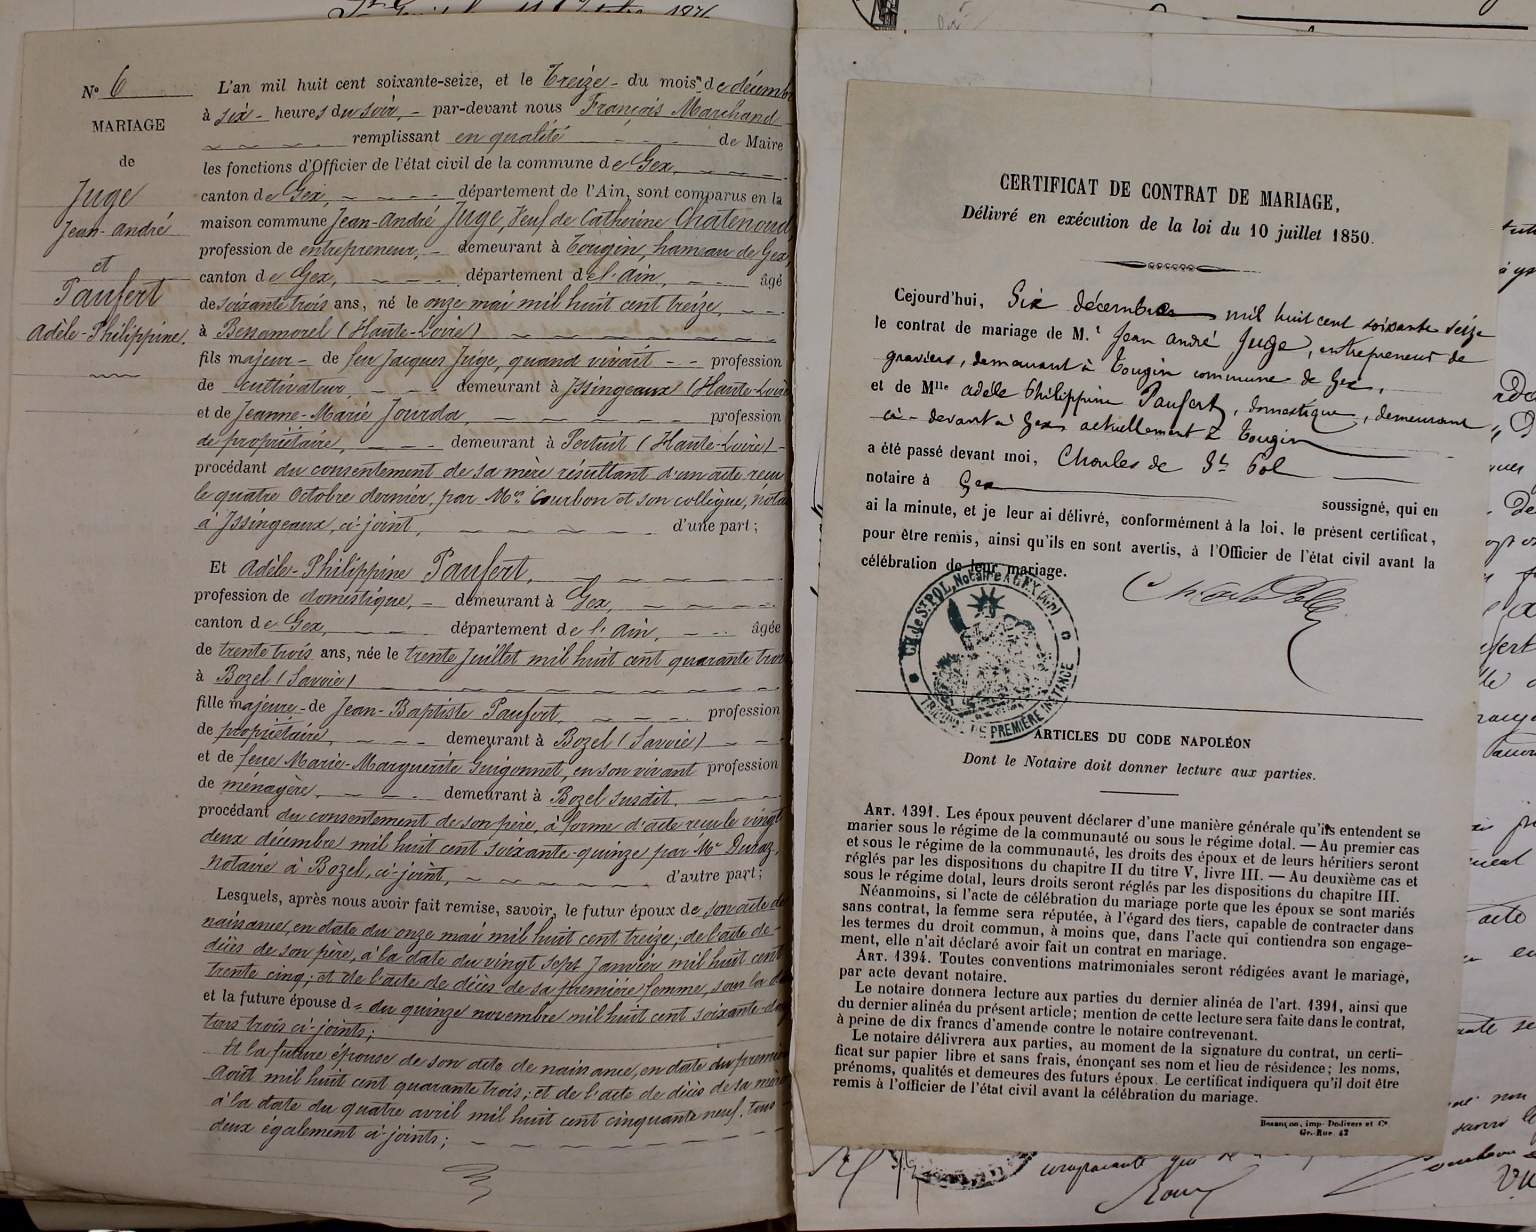 Nº 6
MARIAGE
de
Juge
Jean-André
et
Paufert
Adèle-Philippine.
L'an mil huit cent soixante-seize, et le Treize du mois de décembre
à six heures du soir, par-devant nous François Marchand
remplissant en qualité de Maire
les fonctions d'Officier de l'état civil de la commune de Gex,
canton de Gex, département de l'Ain, sont comparus en la
maison commune Jean-André Juge, veuf de Catherine Chatenoud
profession de entrepreneur, demeurant à Tougin, hameau de Gex,
canton de Gex, département de l'Ain, âgé
de soixante trois ans, né le onze mai mil huit cent treize,
à Bessamorel (Haute-Loire)
fils majeur de feu Jacques Juge, quand vivait profession
de cultivateur, demeurant à Issingeaux (Haute-Loire
et de Jeanne-Marie Jourda, profession
de propriétaire, demeurant à Pertuit (Haute-Loire)
procédant du consentement de sa mère résultant d'un acte reçu
le quatre Octobre dernier, par Me Courbon et son collègue, nota
à Issingeaux, ci-joint, d'une part;
Et Adèle-Philippine Paufert,
profession de domestique, demeurant à Gex,
canton de Gex, département de l'Ain, âgée
de trente trois ans, née le trente Juillet mil huit cent quarante trois
à Bozel (Savoie)
fille majeure de Jean-Baptiste Paufert, profession
de propriétaire, demeurant à Bozel (Savoie)
et de feue Marie-Marguerite Guigonnet, en son vivant profession
de ménagère, demeurant à Bozel susdit,
procédant du consentement de son père, à forme d'acte reçu le vingt
deux décembre mil huit cent soixante-quinze par Me Durraz,
notaire à Bozel, ci-joint, d'autre part;
Lesquels, après nous avoir fait remise, savoir, le futur époux de son acte de
naissance, en date du onze mai mil huit cent treize; de l'acte de
décès de son père, à la date du vingt sept Janvier mil huit cent
trente cinq; et de l'acte de décès de sa première femme, sous la d
et la future épouse d= du quinze novembre mil huit cent soixante-do
tous trois ci-joints;
Et la future épouse de son acte de naissance, en date du premier
Août mil huit cent quarante trois; et de l'acte de décès de sa mère
à la date du quatre avril mil huit cent cinquante neuf, tous
deux également ci-joints;
CERTIFICAT DE CONTRAT DE MARIAGE,
Délivré en exécution de la loi du 10 juillet 1850.
Cejourd'hui, Six décembre mil huit cent soixante seize
le contrat de mariage de M.r Jean André Juge, entrepreneur de
graviers, demeurant à Tougin commune de Gex,
et de Mlle Adèle Philippine Paufert, domestique, demeurant
ci-devant à Gex actuellement à Tougin
a été passé devant moi, Charles de St Pol
notaire à Gex soussigné, qui en
ai la minute, et je leur ai délivré, conformément à la loi, le présent certificat,
pour être remis, ainsi qu'ils en sont avertis, à l'Officier de l'état civil avant la
célébration de leur mariage.
CH de St POL, Notaire à GEX (Ain)
TRIBUNAL DE PREMIÈRE INSTANCE
ARTICLES DU CODE NAPOLÉON
Dont le Notaire doit donner lecture aux parties.
ART. 1391. Les époux peuvent déclarer d'une manière générale qu'ils entendent se
marier sous le régime de la communauté ou sous le régime dotal. — Au premier cas
et sous le régime de la communauté, les droits des époux et de leurs héritiers seront
réglés par les dispositions du chapitre II du titre V, livre III. — Au deuxième cas et
sous le régime dotal, leurs droits seront réglés par les dispositions du chapitre III.
Néanmoins, si l'acte de célébration du mariage porte que les époux se sont mariés
sans contrat, la femme sera réputée, à l'égard des tiers, capable de contracter dans
les termes du droit commun, à moins que, dans l'acte qui contiendra son engage-
ment, elle n'ait déclaré avoir fait un contrat en mariage.
ART. 1394. Toutes conventions matrimoniales seront rédigées avant le mariage,
par acte devant notaire.
Le notaire donnera lecture aux parties du dernier alinéa de l'art. 1391, ainsi que
du dernier alinéa du présent article; mention de cette lecture sera faite dans le contrat,
à peine de dix francs d'amende contre le notaire contrevenant.
Le notaire délivrera aux parties, au moment de la signature du contrat, un certi-
ficat sur papier libre et sans frais, énonçant ses nom et lieu de résidence; les noms,
prénoms, qualités et demeures des futurs époux. Le certificat indiquera qu'il doit être
remis à l'officier de l'état civil avant la célébration du mariage.
Besançon, imp. Dodivers et Ce
Gr.-Rue 42
comparante qui